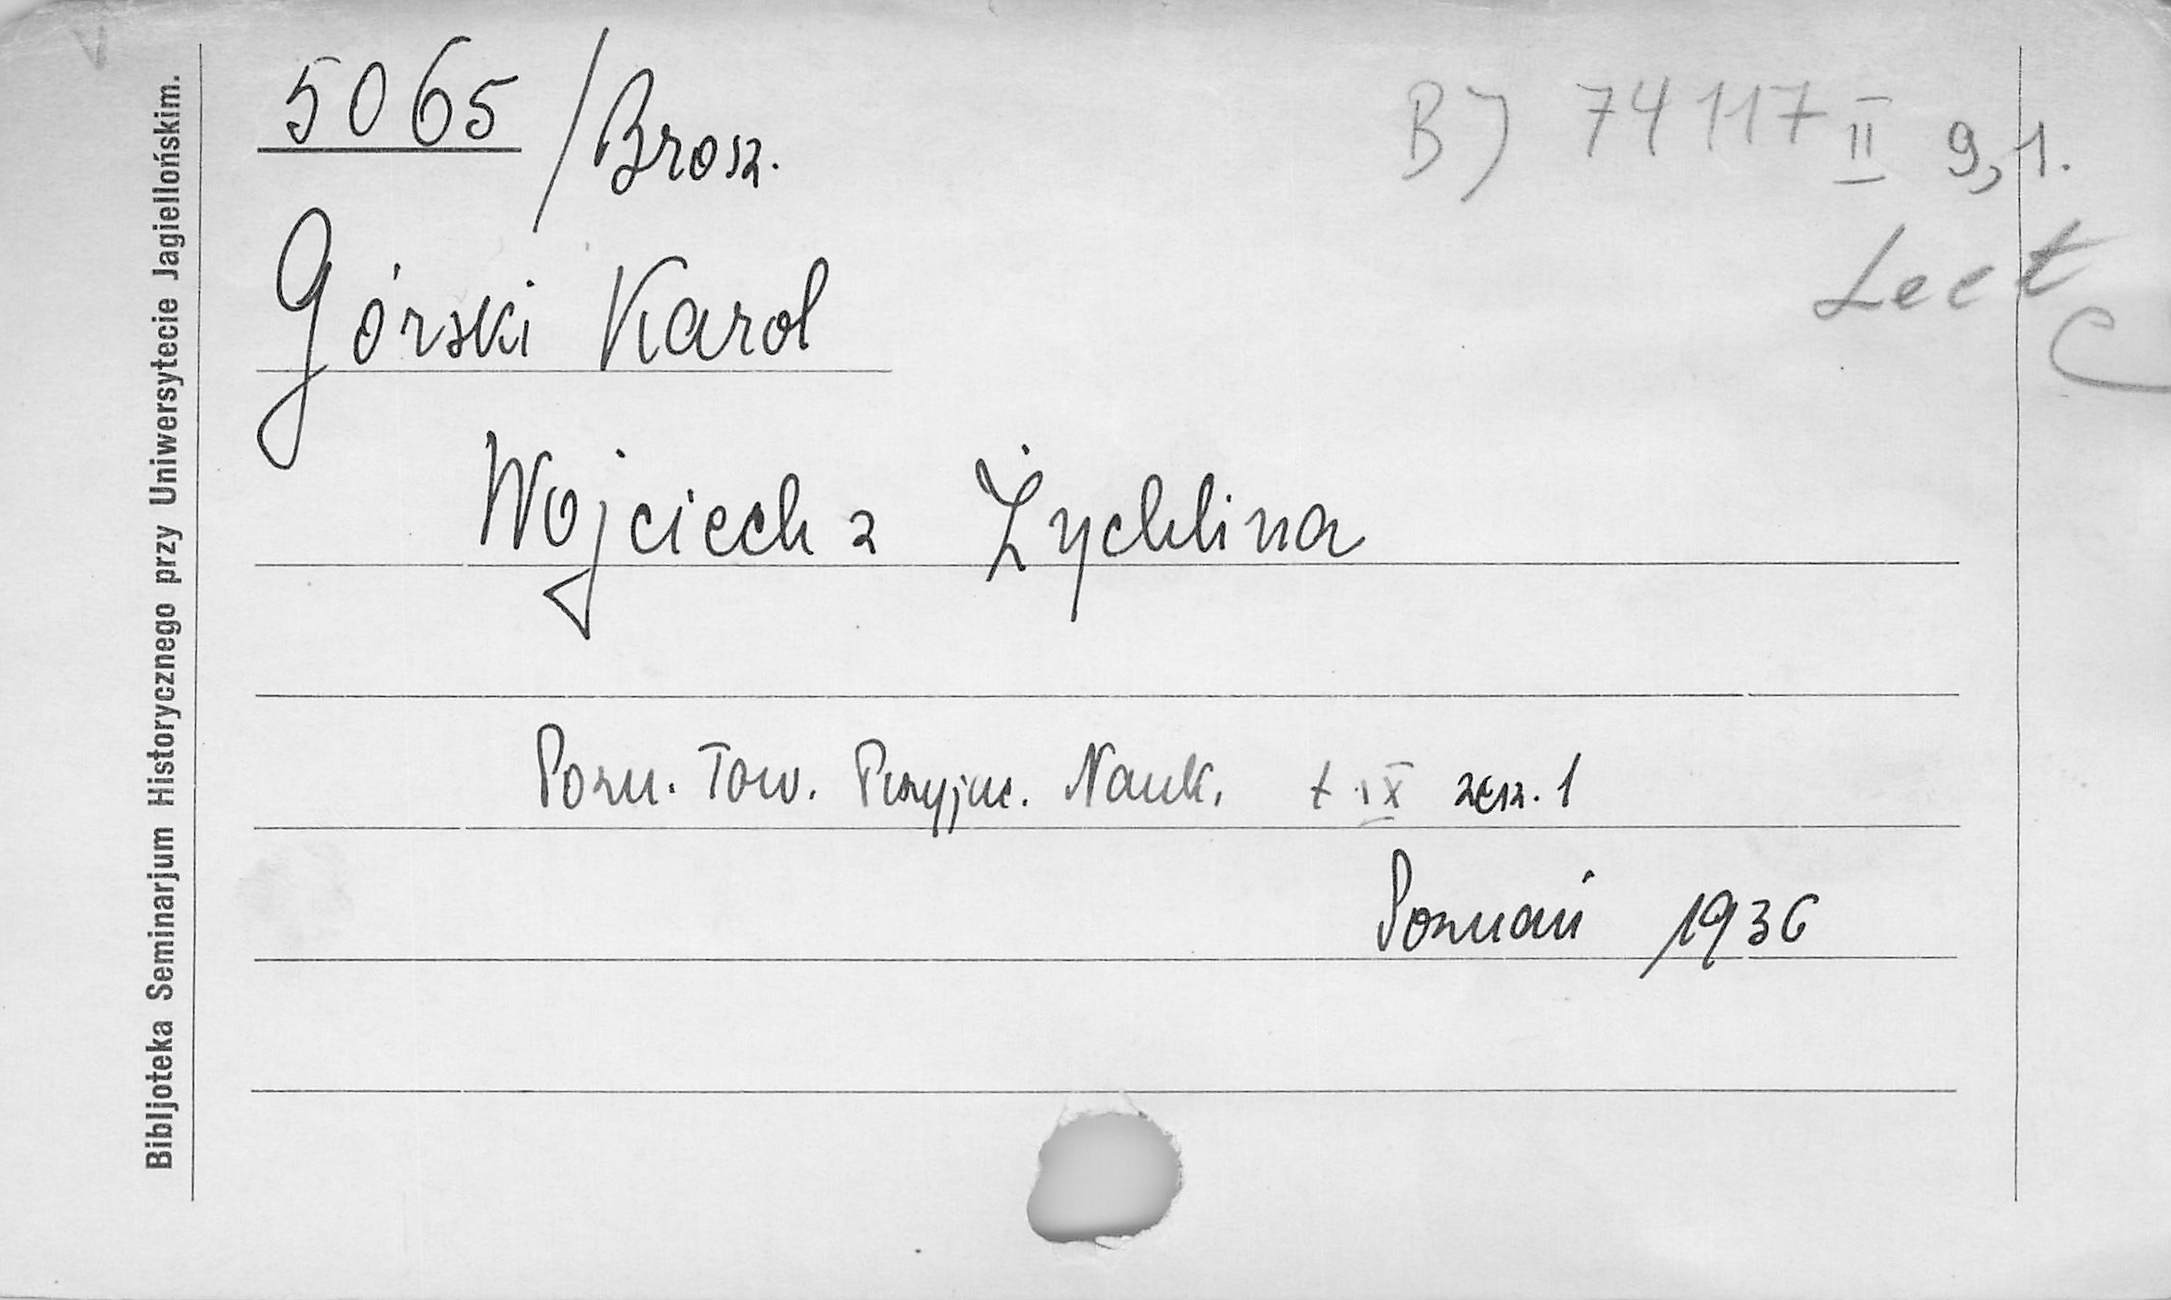 5065/Brosz.
BJ 74117 II 9,1.
Lect
C
Górski Karol
Wojciech z Żychlina
Pozn. Tow. Przyjac. Nauk. t IX zesz. 1
Poznań 1936
Bibljoteka Seminarjum Historycznego przy Uniwersytecie Jagiellońskim.